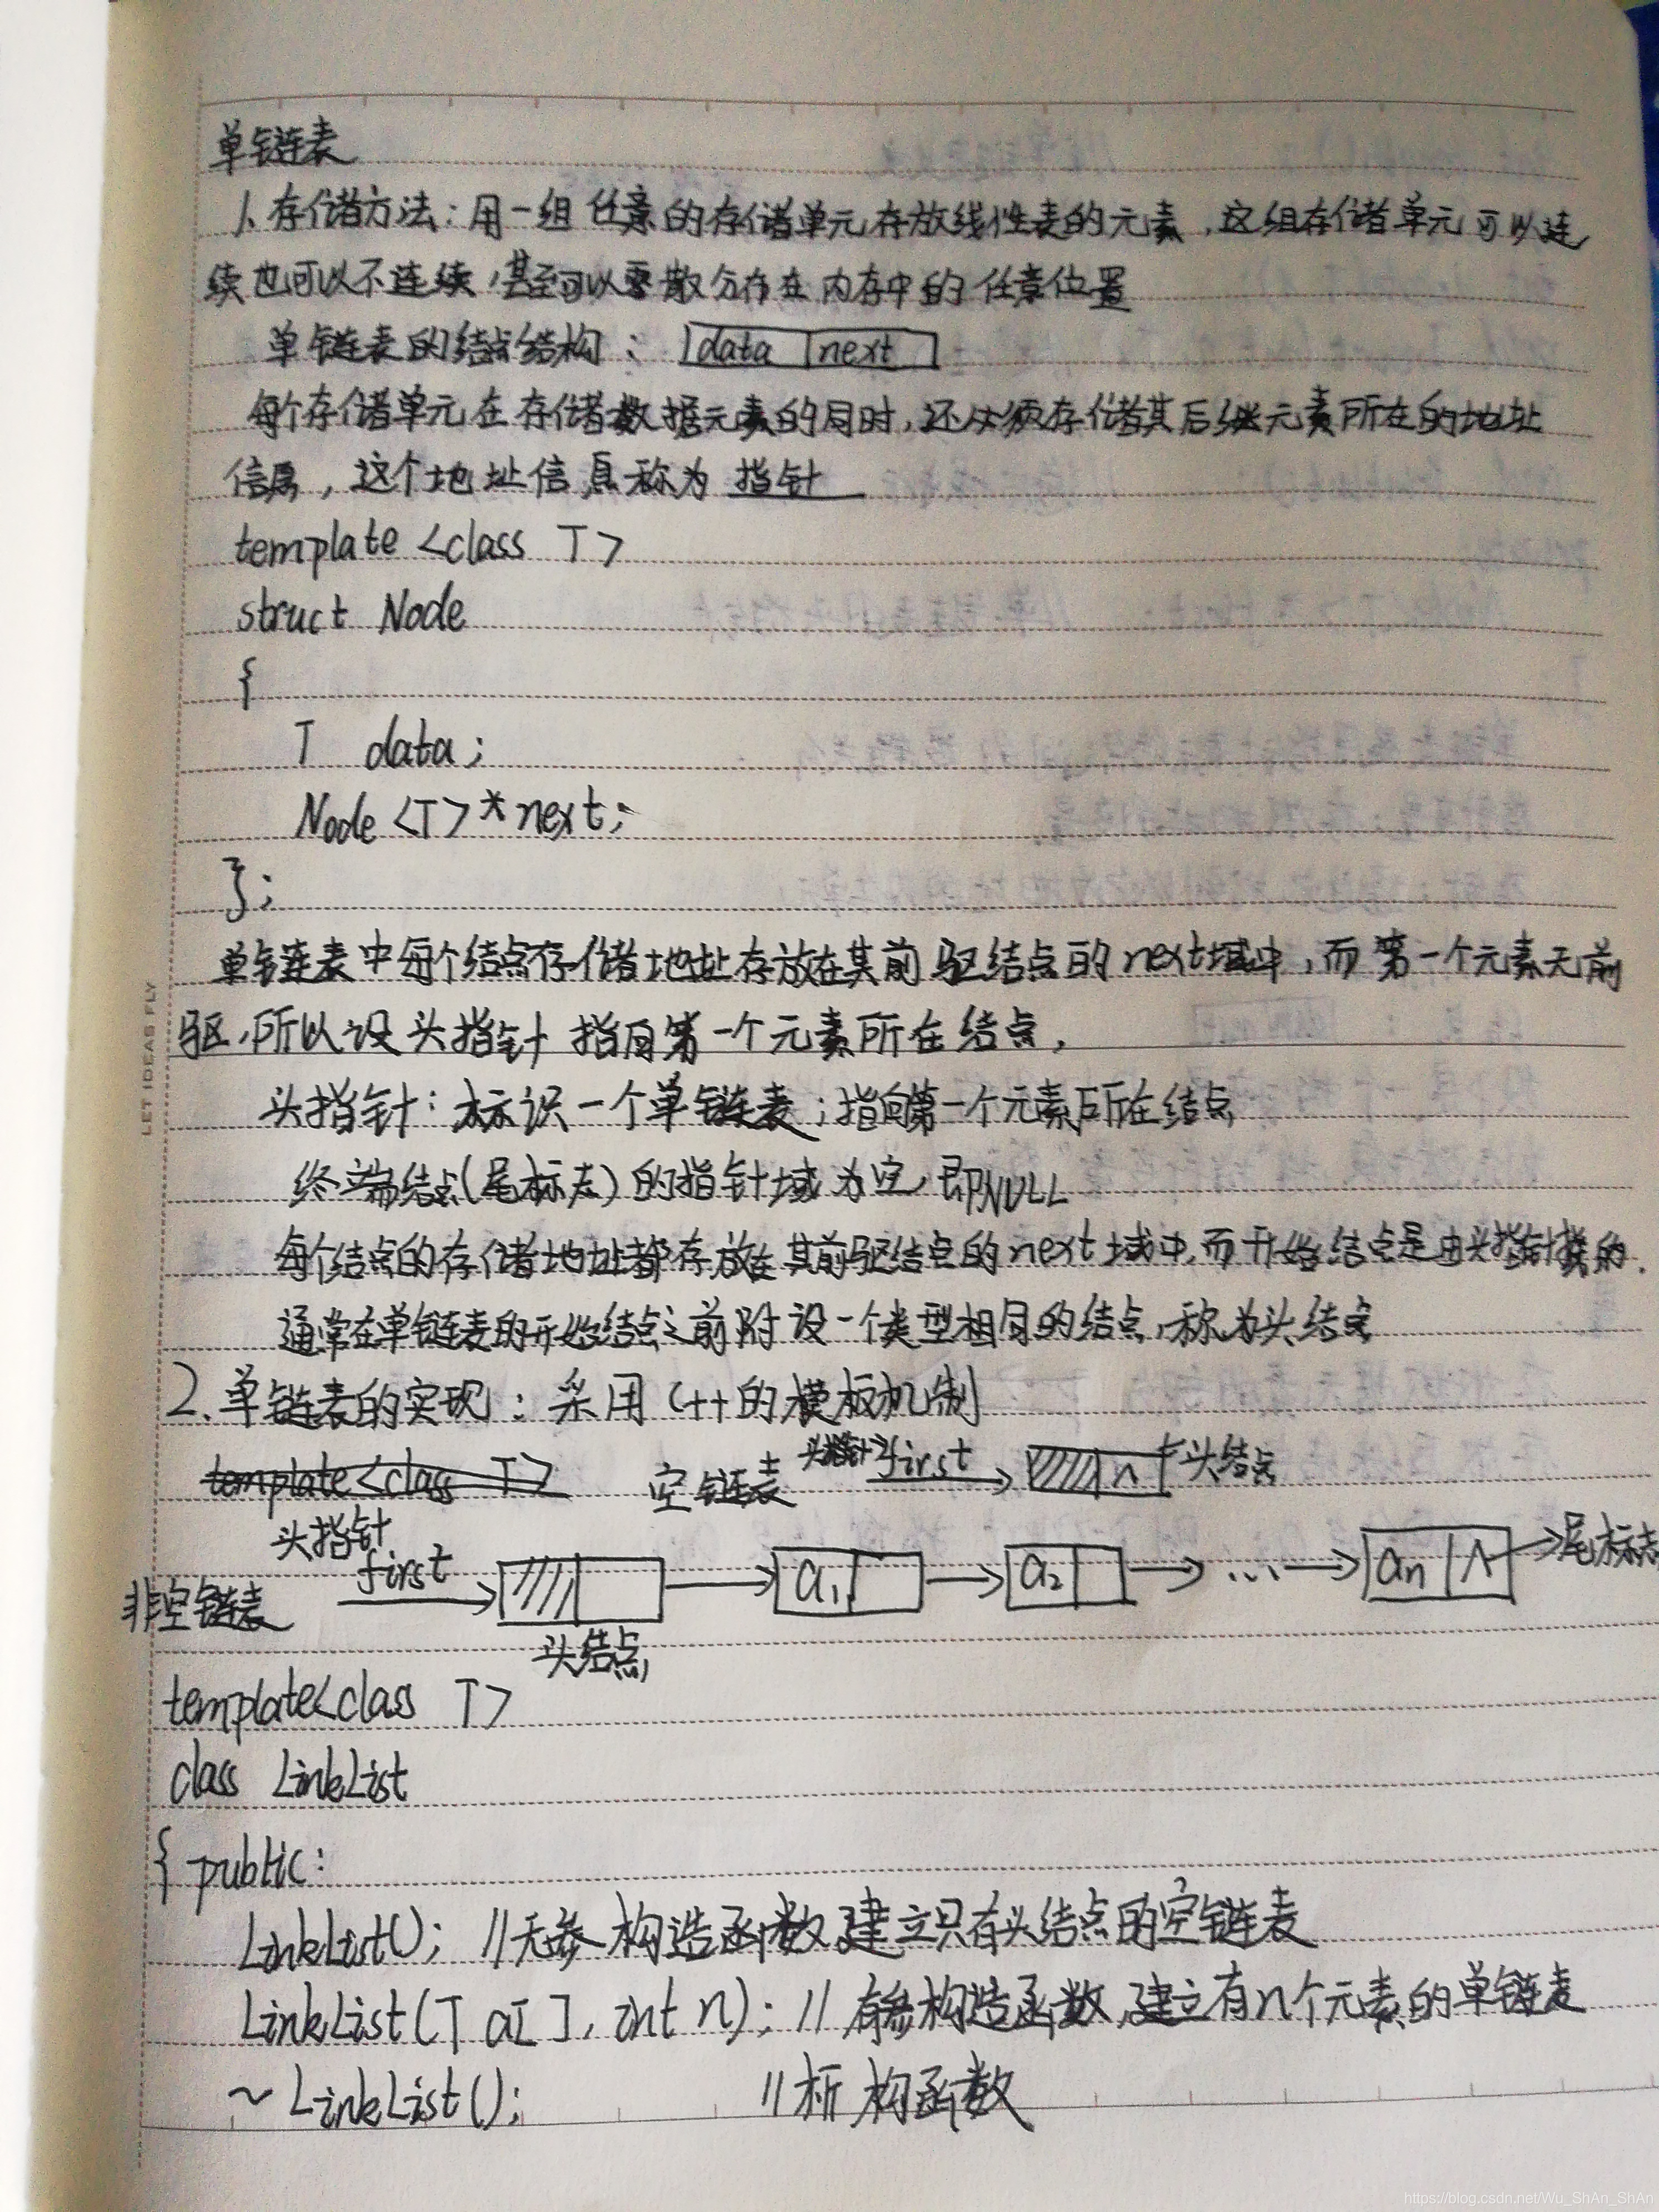 单链表
1、存储方法：用一组任意的存储单元存放线性表的元素，这组存储单元可以连
续也可以不连续，甚至可以零散分布在内存中的任意位置
单链表的结点结构：data next
每个存储单元在存储数据元素的同时，还必须存储其后继元素所在的地址
信息，这个地址信息称为指针
template <class T>
struct Node
{
T data;
Node <T> * next;
};
单链表中每个结点存储地址存放在其前驱结点的next域中，而第一个元素无前
驱，所以设头指针指向第一个元素所在结点，
头指针：标识一个单链表；指向第一个元素所在结点
终端结点(尾标志)的指针域为空，即NULL
每个结点的存储地址都存放在其前驱结点的next域中，而开始结点是由头指针指的.
通常在单链表的开始结点之前附设一个类型相同的结点，称为头结点
2.单链表的实现：采用C++的模板机制
template<class T> 空链表 头指针 first ∧ 头结点
头指针
非空链表 first a1 a2 ... an ∧ 尾标志
头结点
template<class T>
class LinkList
{ public:
LinkList(); //无参构造函数，建立只有头结点的空链表
LinkList(T a[ ], int n); //有参构造函数，建立有n个元素的单链表
~LinkList(); //析构函数
LET IDEAS FLY
https://blog.csdn.net/Wu_ShAn_ShAn